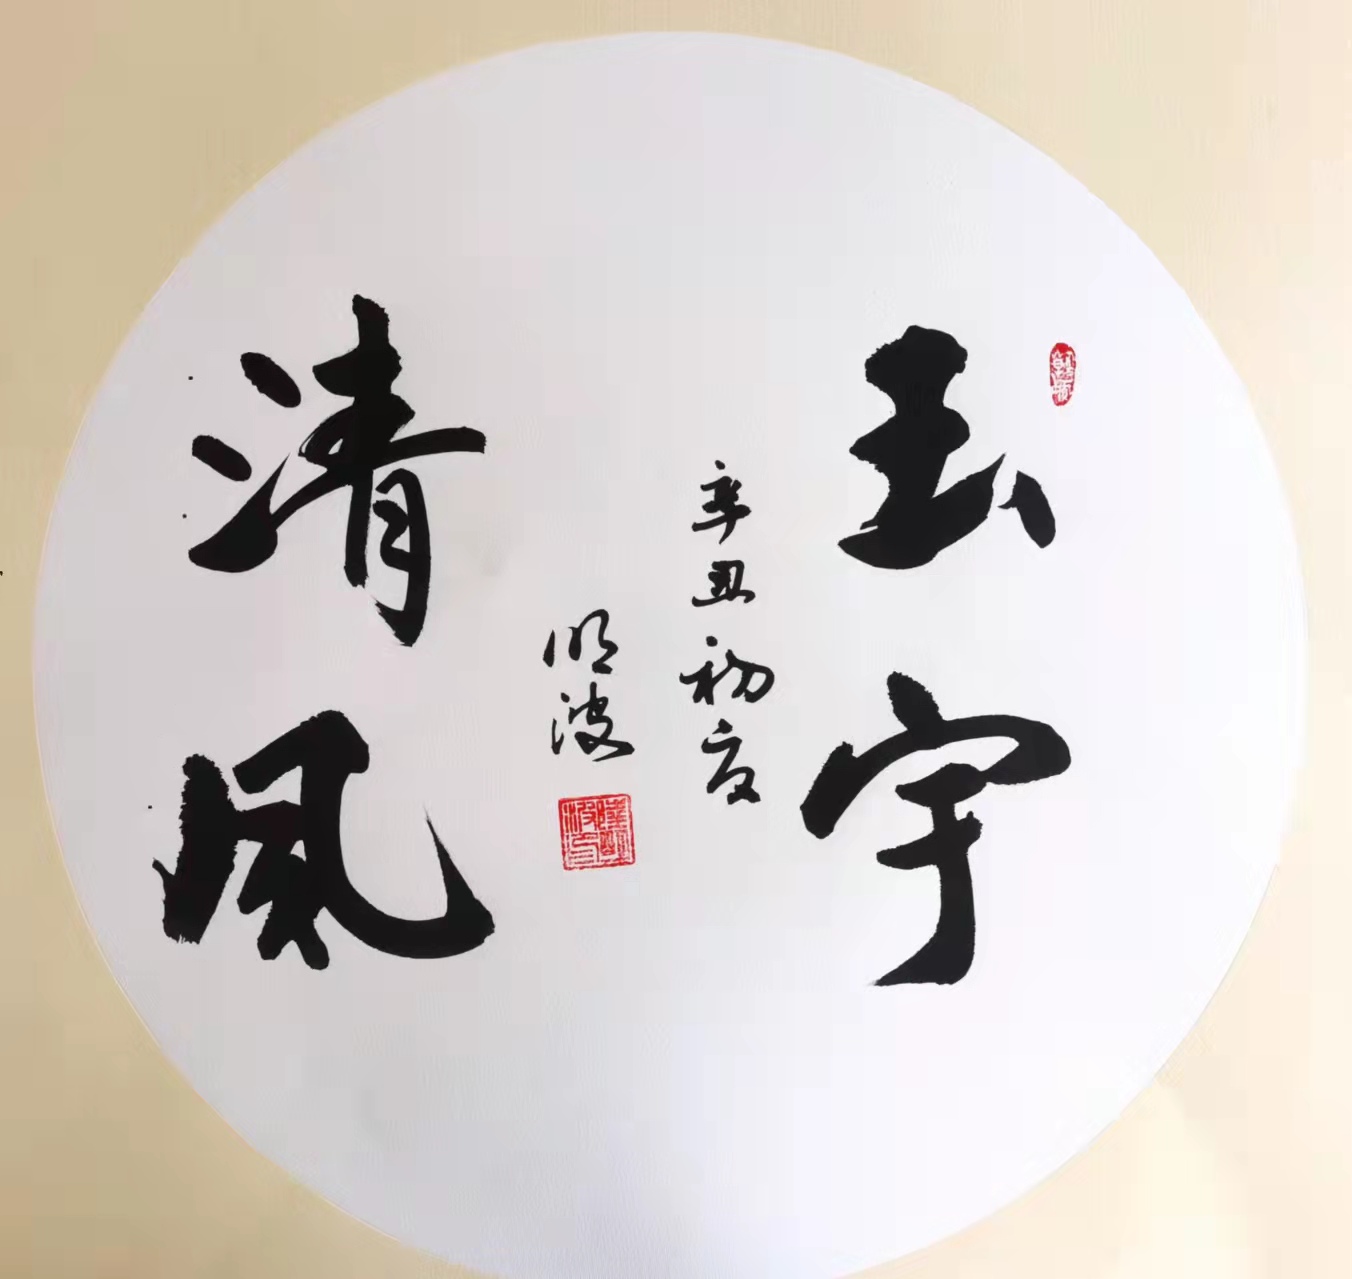 玉宇
清风
辛丑初夏
明波